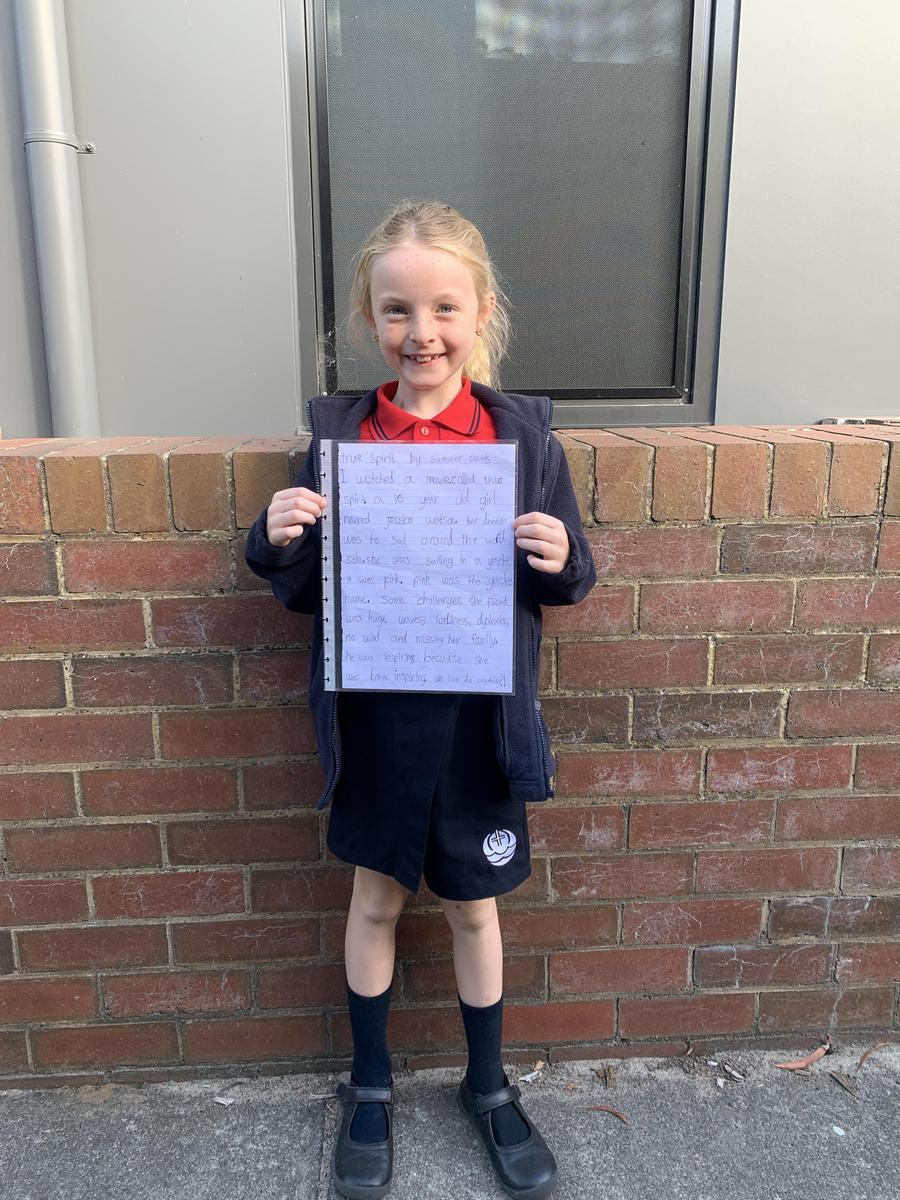 true spirit by summer oates
I watched a movie.called true
spirit a 16 year old girl
named jessica watson. her dream
was to sail around the world
solo. she was sailing in a yacht
it was pink. pink was the yachts
name. some challenges she faced
was huge waves, lonliness, dyslexia,
no wind and missing her family.
she was inspiring because she
was brave inspiring we can do anything!!